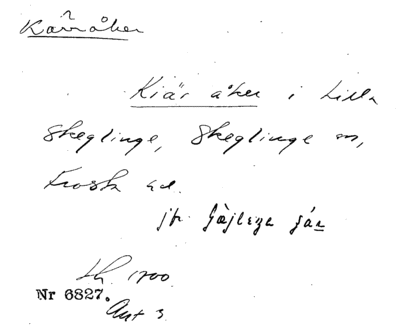 Kärråker
Kiär åker i Lilla
Skeglinge, Skeglinge sn,
Frosta hd.
jfr
Lh. 1700.
Nr 6827.
Akt 3